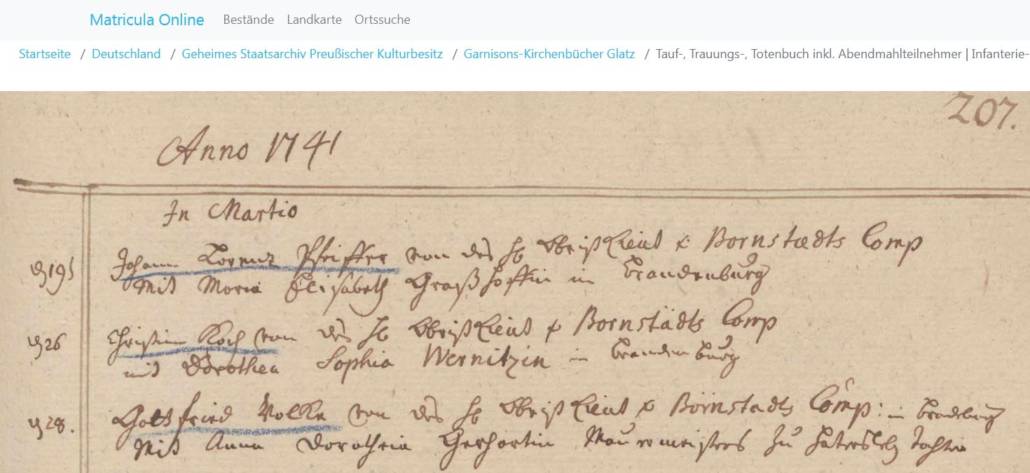 Matricula Online Bestände Landkarte Ortssuche
Startseite / Deutschland / Geheimes Staatsarchiv Preußischer Kulturbesitz / Garnisons-Kirchenbücher Glatz / Tauf-, Trauungs-, Totenbuch inkl. Abendmahlteilnehmer | Infanterie-
207.
Anno 1741
In Martio
Johann Lorenz Pfeiffer von des H. Obrist Lieut v Bornstædts Comp
Mit Maria Elisabeth in Brandenburg
Christian Koch von des H. Obrist Lieut v Bornstädts Comp
mit Dorothea Sophia Wernitzin in Brandenburg
28.
Gottfried Nolke von des H. Obrist Lieut v Bornstadts Comp: in
Mit Anna Dorothea Gerhartin Mauermeisters zu Tochter